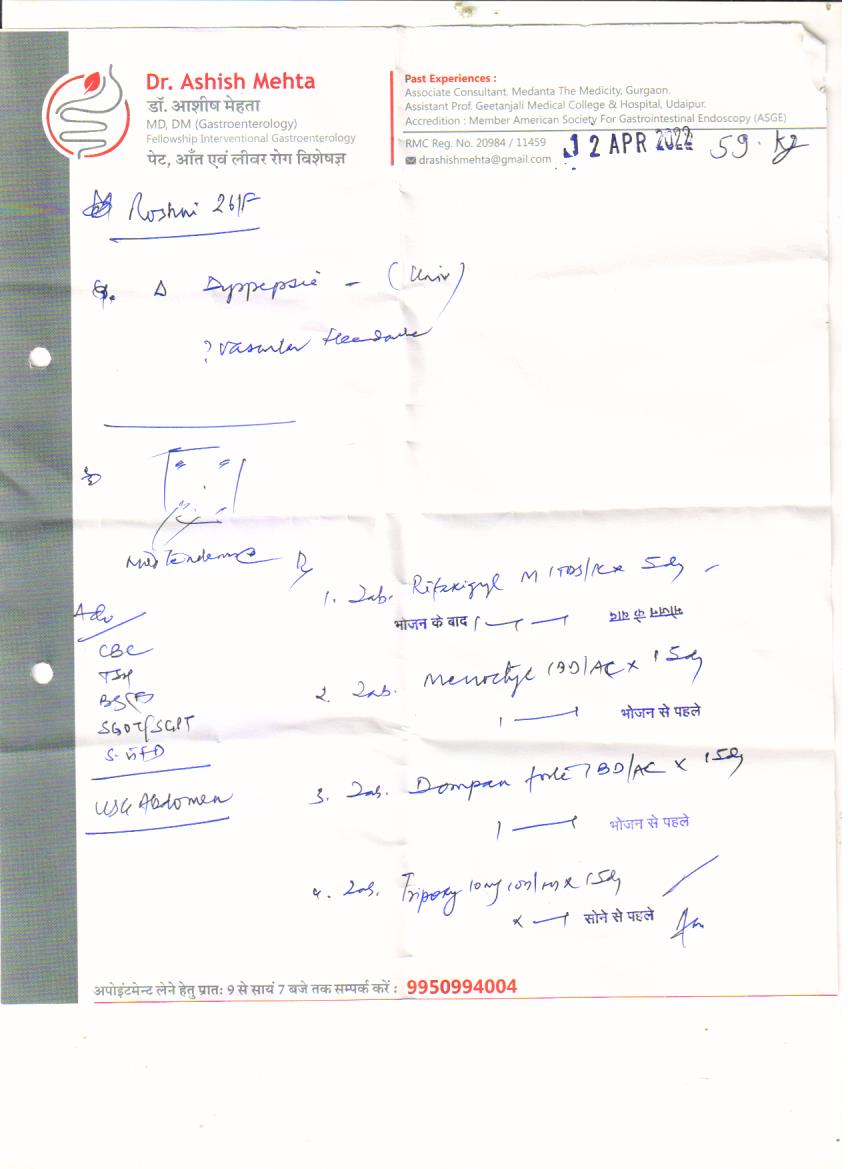 Dr. Ashish Mehta
डॉ. आशीष मेहता
MD, DM (Gastroenterology)
Fellowship Interventional Gastroenterology
पेट, आँत एवं लीवर रोग विशेषज्ञ
Past Experiences :
Associate Consultant, Medanta The Medicity, Gurgaon.
Assistant Prof. Geetanjali Medical College & Hospital, Udaipur.
Accredition : Member American Society For Gastrointestinal Endoscopy (ASGE)
RMC Reg. No. 20984 / 11459
drashishmehta@gmail.com
12 APR 2022
59 kg
Roshni 26/F
Δ Dyspepsia -
? Vascular Headache
Mild Tenderness
Rx
Adv
CBC
TSH
SGOT/SGPT
USG Abdomen
1. Tab. M 1 TDS x 5d
भोजन के बाद 1 भोजन के बाद
2. Tab. 1 BD/AC x 15d
1 भोजन से पहले
3. Tab. Dompan forte 1 BD/AC x 15d
1 भोजन से पहले
4. Tab. 10mg x 15d
x सोने से पहले
अपोइंटमेन्ट लेने हेतु प्रातः 9 से सायं 7 बजे तक सम्पर्क करें : 9950994004